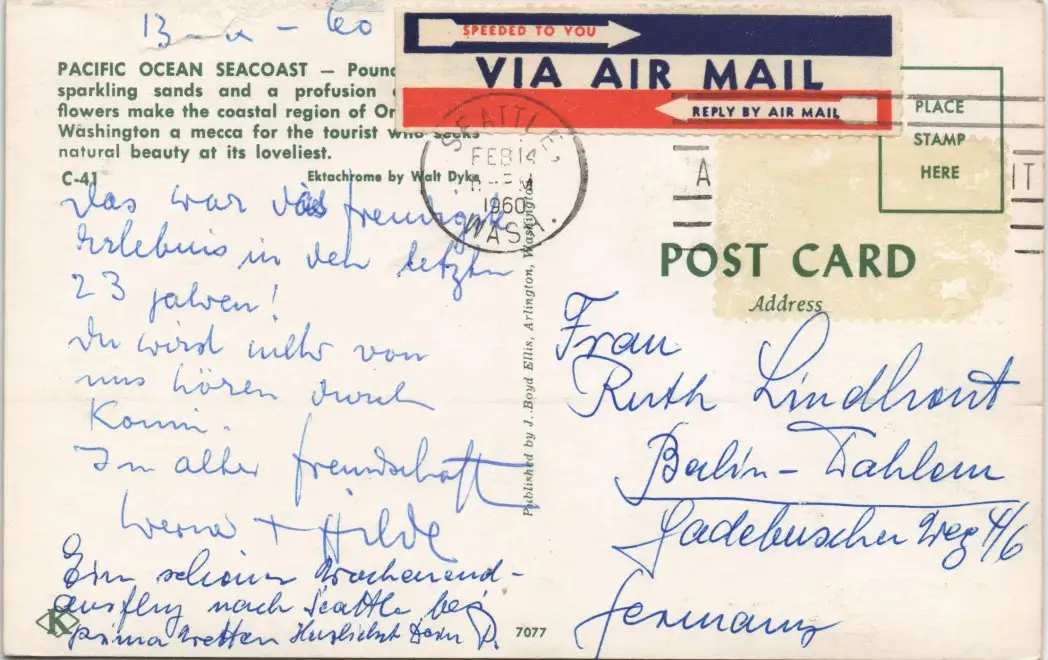 13 - - 60
SPEEDED TO YOU
VIA AIR MAIL
REPLY BY AIR MAIL
PACIFIC OCEAN SEACOAST —
sparkling sands and a profusion
flowers make the coastal region of
Washington a mecca for the tourist who seeks
natural beauty at its loveliest.
C-41 Ektachrome by Walt Dyke
SEATTLE,
FEB 14
1960
WASH.
PLACE
STAMP
HERE
POST CARD
Address
Das war das freudigste
Erlebnis in den letzten
23 Jahren!
Du wirst mehr von
uns hören durch
In alter Freundschaft
Werner + Hilde
Ein schöner Wochenend-
ausflug nach Seattle bei
prima Wetter Herzlichst Dein
Published by J. Boyd Ellis, Arlington, Washington
Frau
Ruth Lindhorst
Berlin - Dahlem
Gadebuscher Weg 4/6
Germany
K
7077